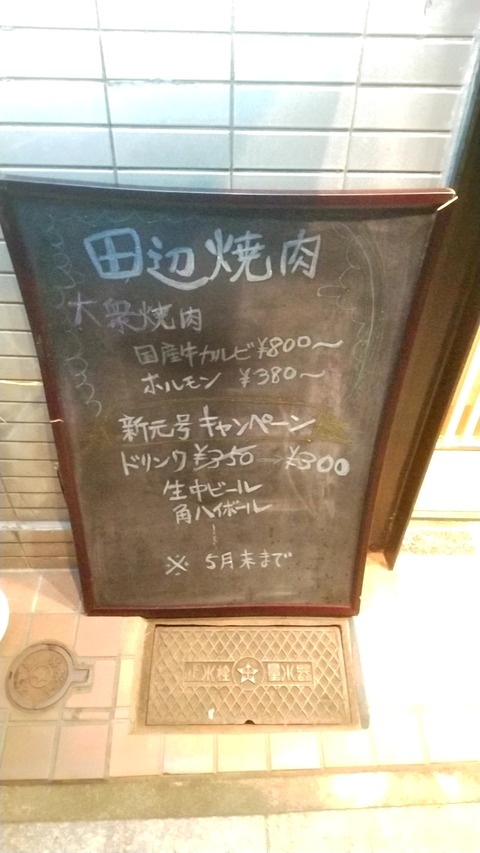 田辺焼肉
大衆焼肉
国産牛カルビ ¥800〜
ホルモン ¥380〜
新元号キャンペーン
ドリンク ¥350→¥300
生中ビール
角ハイボール
〜
※ 5月末まで
止水栓 量水器